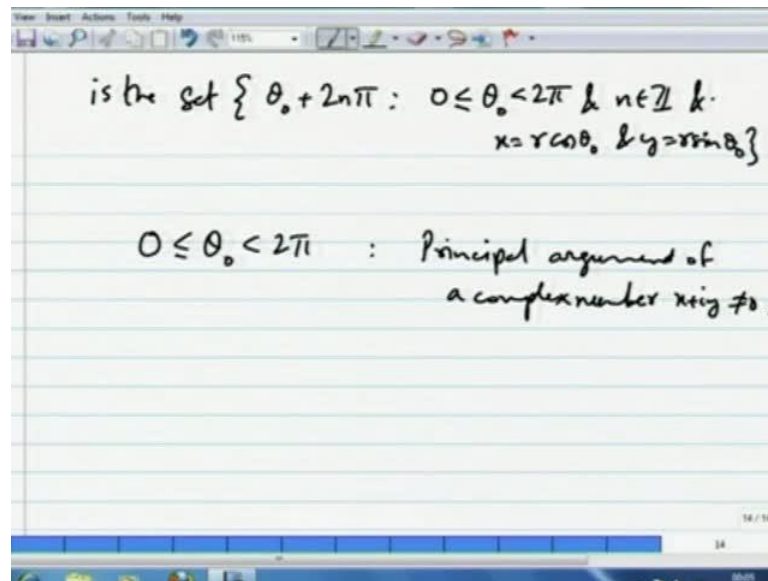 View Insert Actions Tools Help
115%
is the set { θ₀ + 2nπ : 0 ≤ θ₀ < 2π & n∈ℤ &
x = r cos θ₀ & y = r sin θ₀ }
0 ≤ θ₀ < 2π : Principal argument of
a complex number x+iy ≠ 0
14